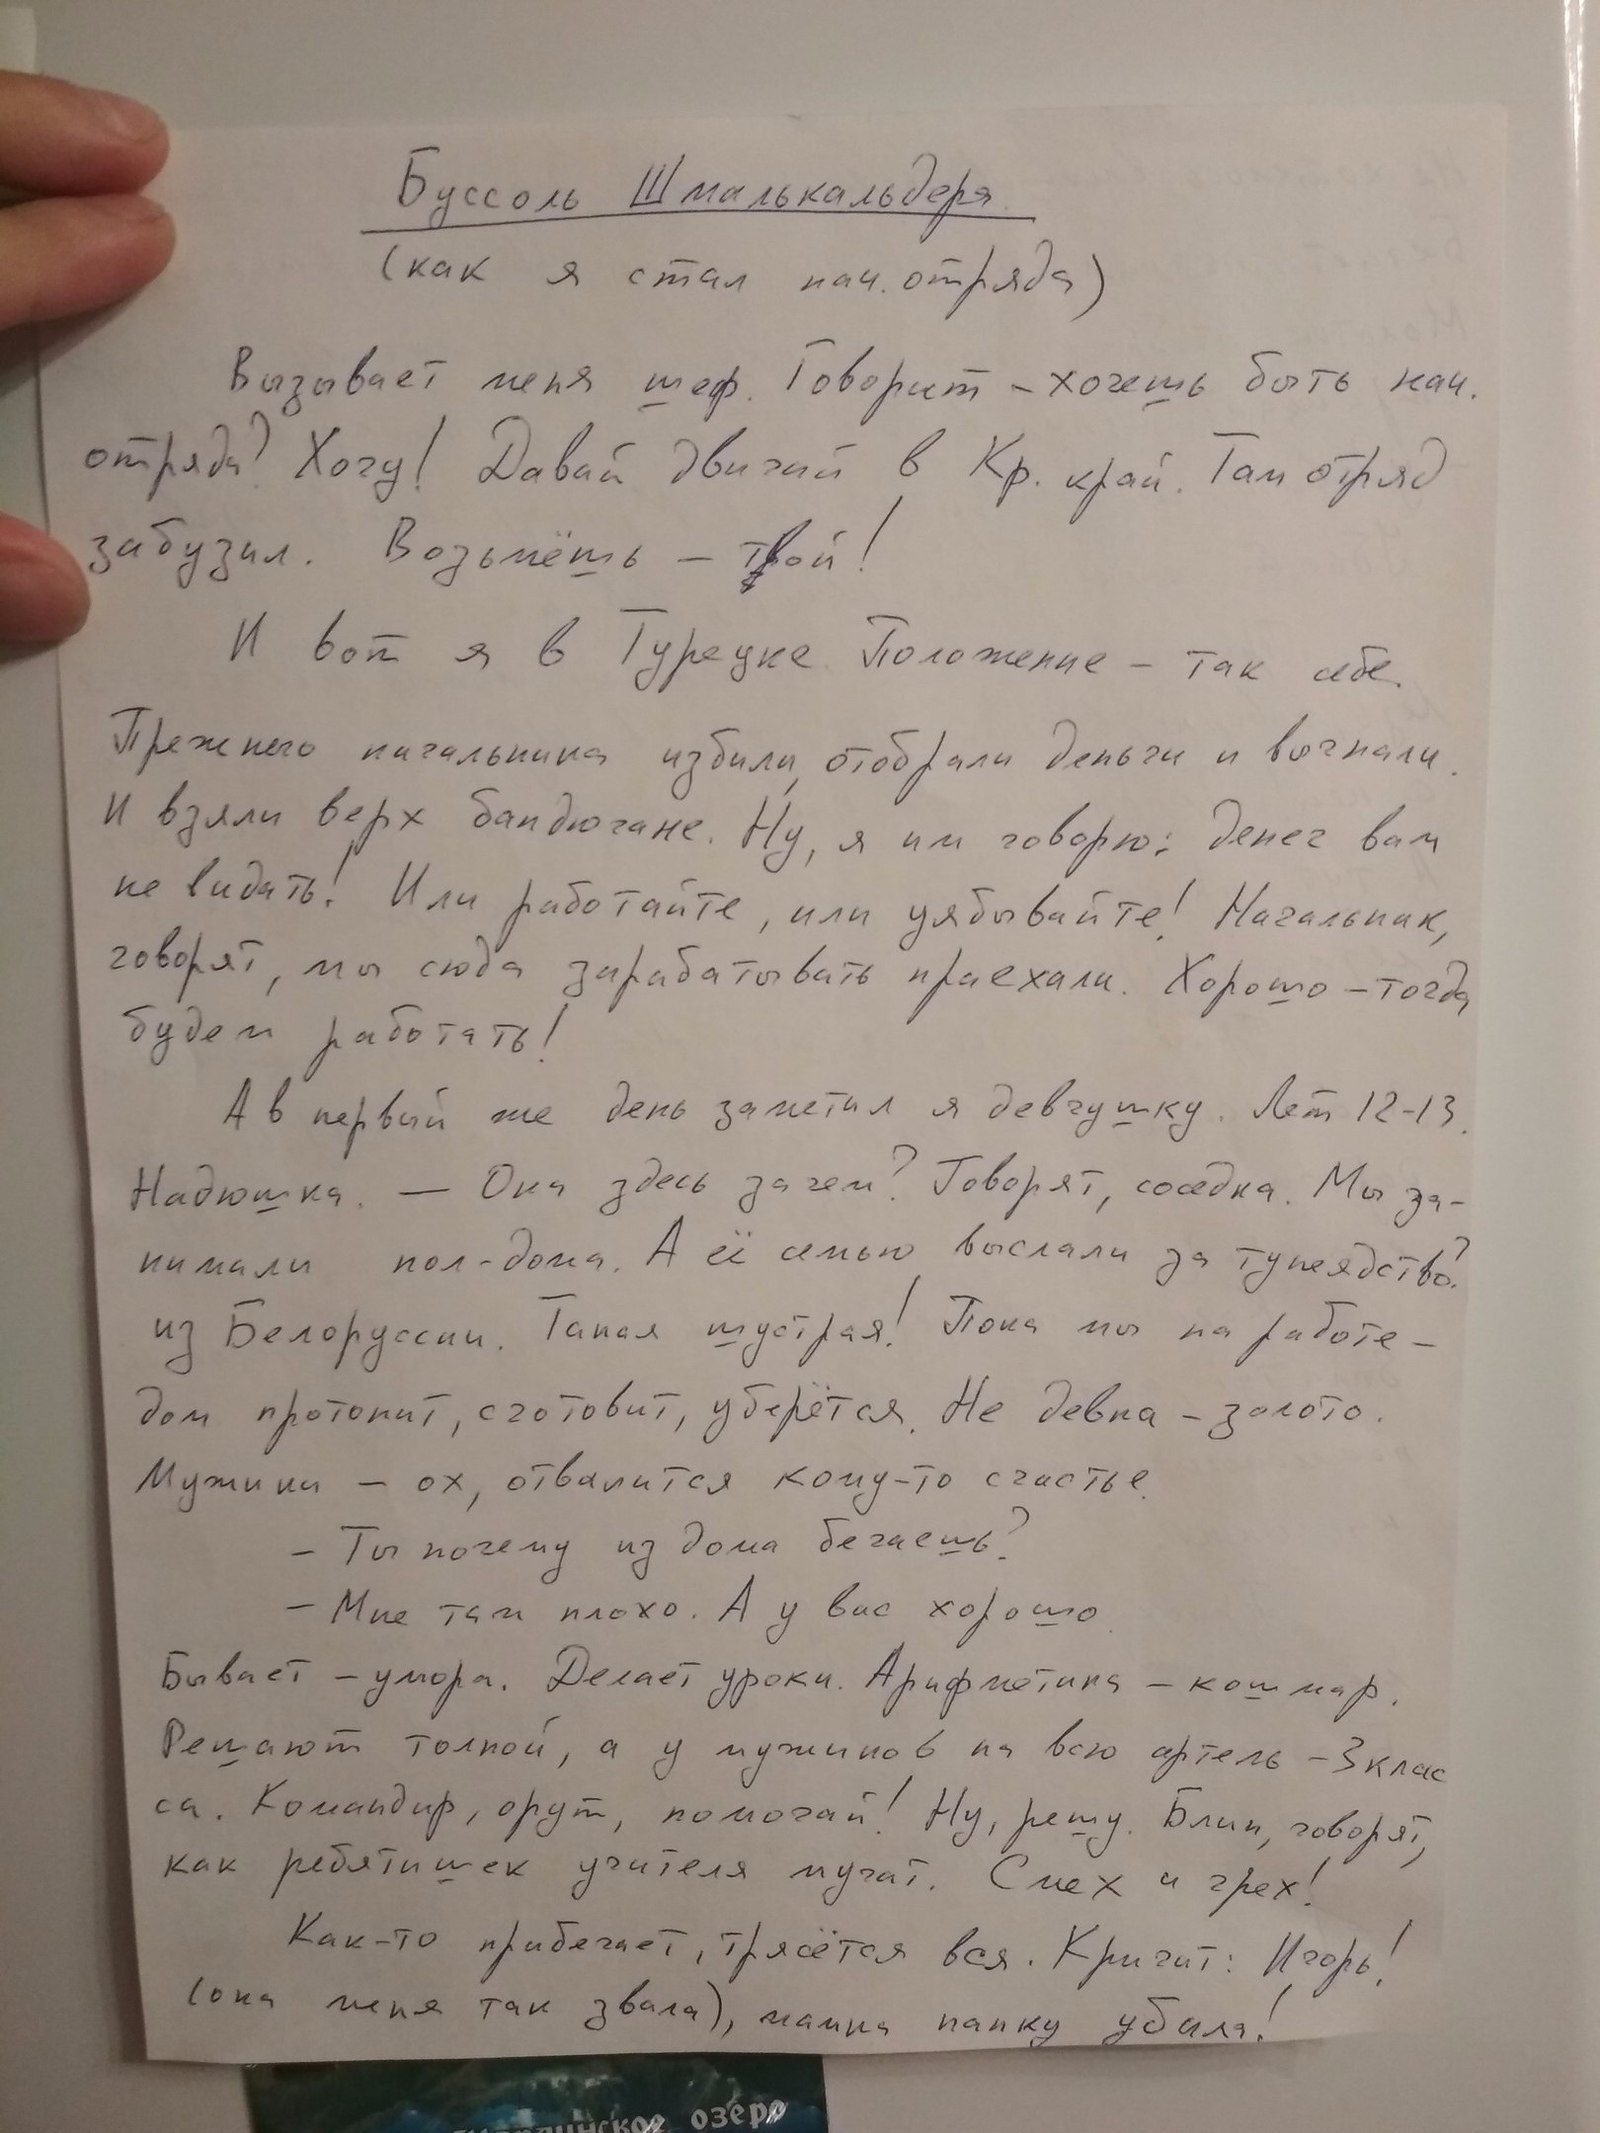 Буссоль Шмалькальдеря
(как я стал нач. отряда)
Вызывает меня шеф. Говорит – хочешь быть нач.
отряда? Хочу! Давай двигай в Кр. край. Там отряд
забузил. Возьмёшь – твой!
И вот я в Турецке. Положение – так себе.
Прежнего начальника избили, отобрали деньги и выгнали.
И взяли верх бандюгане. Ну, я им говорю: денег вам
не видать! Или работайте, или уябывайте! Начальник,
говорят, мы сюда зарабатывать приехали. Хорошо – тогда
будем работать!
А в первый же день заметил я девчушку. Лет 12-13.
Надюшка. — Она здесь зачем? Говорят, соседка. Мы за-
нимали пол-дома. А её семью выслали за тунеядство?
из Белоруссии. Такая шустрая! Пока мы на работе –
дом протопит, сготовит, уберётся. Не девка – золото.
Мужики – ох, отвалится кому-то счастье.
– Ты почему из дома бегаешь?
– Мне там плохо. А у вас хорошо.
Бывает – умора. Делает уроки. Арифметика – кошмар.
Решают толпой, а у мужиков на всю артель – 3 клас
са. Командир, орут, помогай! Ну, решу. Блин, говорят,
как ребятишек учителя мучат. Смех и грех!
Как-то прибегает, трясётся вся. Кричит: Игорь!
(она меня так звала), мамка папку убила!
озеро